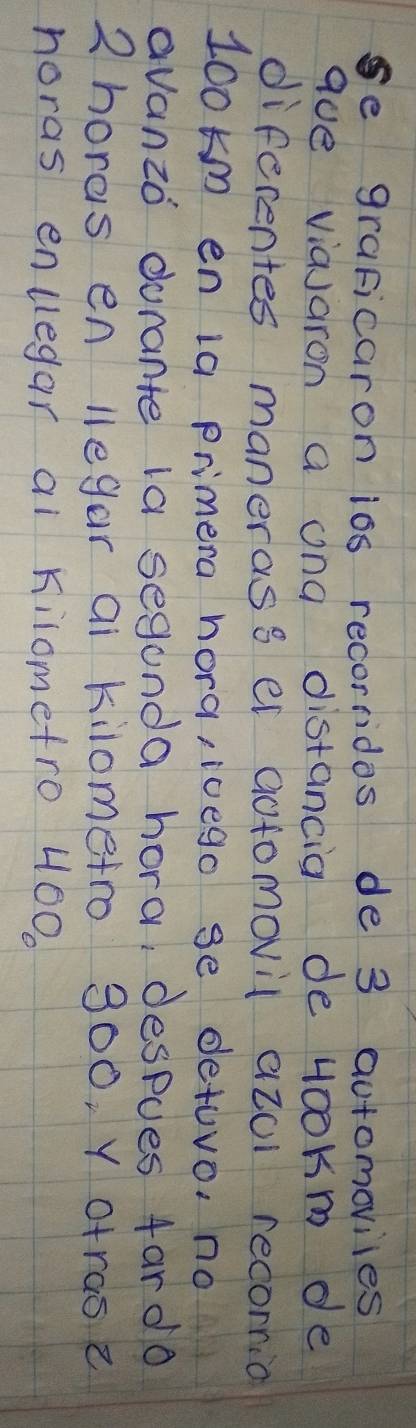 Se graficaron los recorridos de 3 automoviles
que viajaron a una distancia de 400km de
diferentes maneras: el automovil azul recorrio
100 km en la primera hora, luego se detuvo, no
avanzó durante la segunda hora, despues tardo
2 horas en llegar al kilometro 300, y otras 2
horas en llegar al kilometro 400.